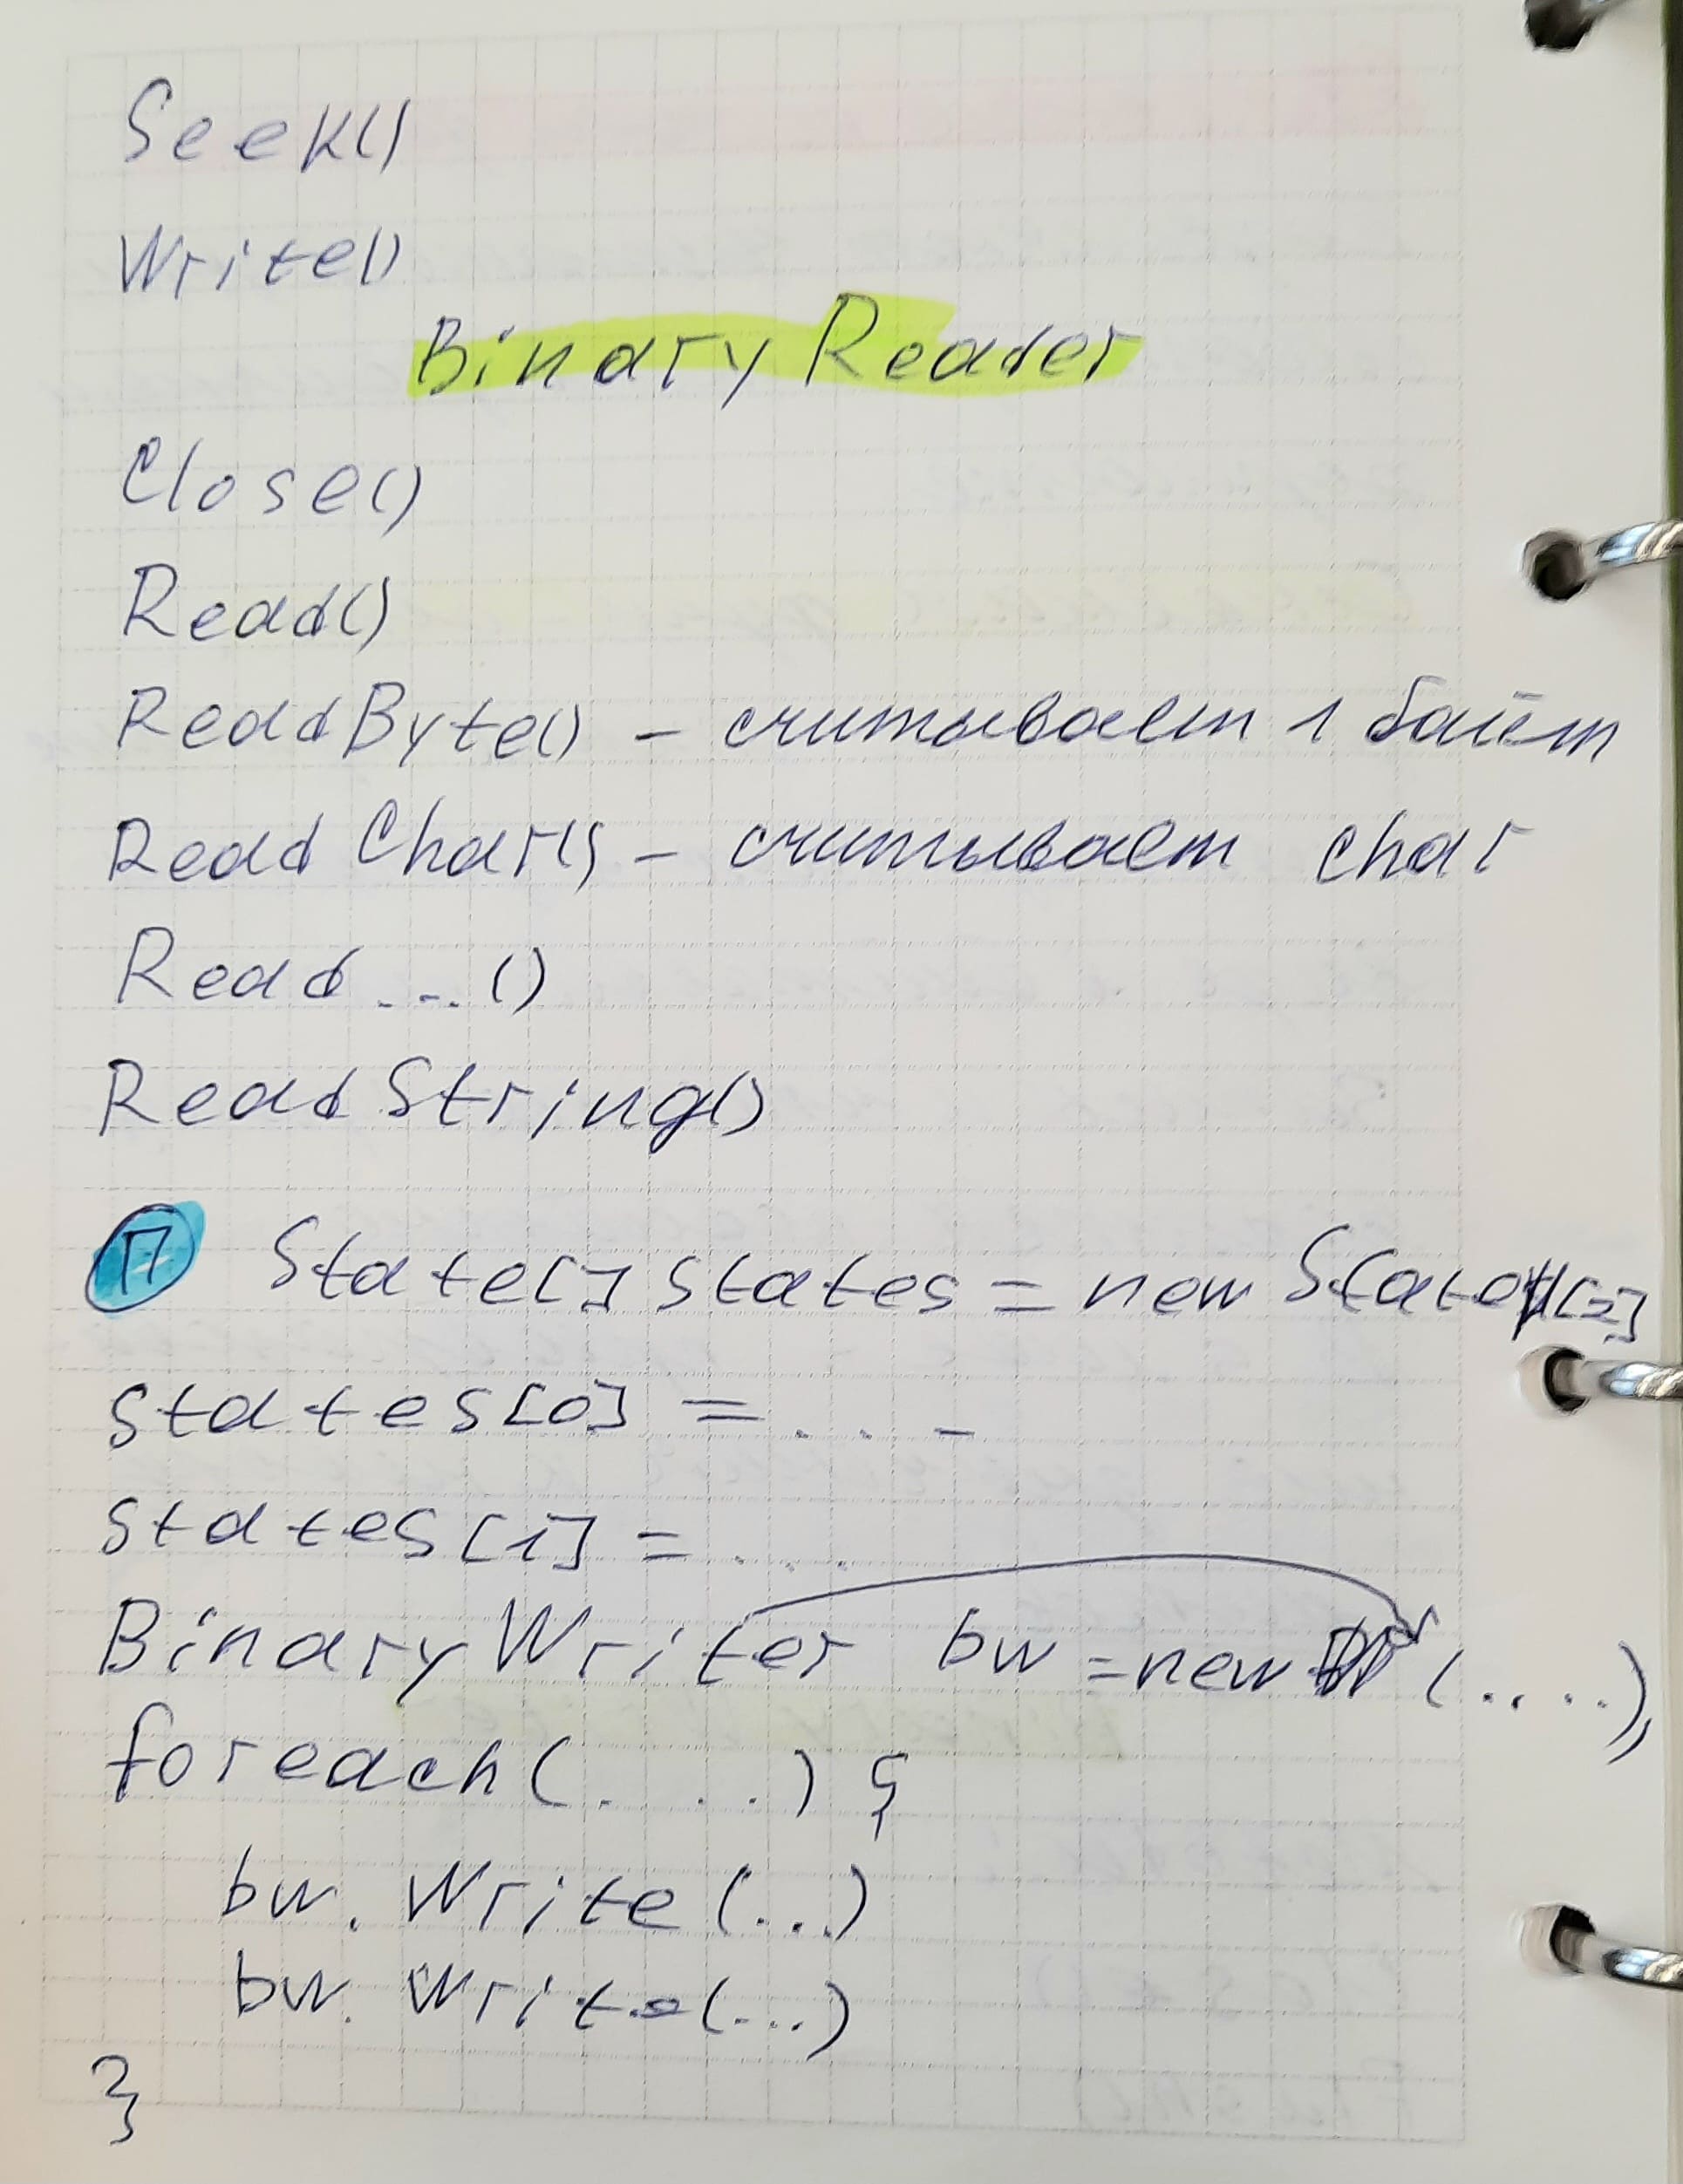 Seek()
Write()
Binary Reader
Close()
Read()
ReadByte() - считывает 1 байт
Read Char() - считывает char
Read ...()
Read String()
П State[] states = new State[2]
states[0] = ....
states[1] = ....
Binary Writer bw = new (.....);
foreach(....) {
bw. Write (...)
bw. Write (...)
}